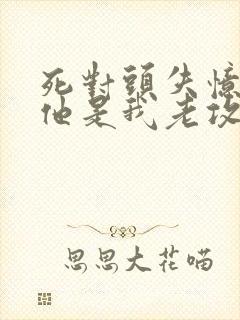 死對頭失憶
他是我老攻
思思大花喵